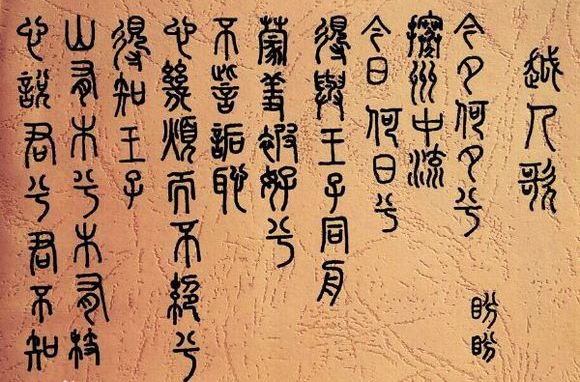 越人歌
今夕何夕兮
盼盼
搴州中流
今日何日兮
得與王子同舟
蒙羞被好兮
不訾詬恥
心幾煩而不絕兮
得知王子
山有木兮木有枝
心說君兮君不知